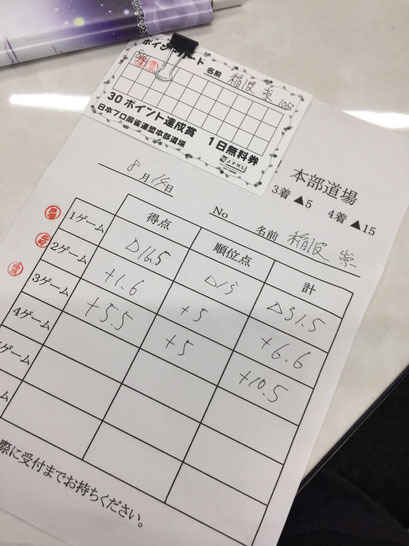 ポイントカード
名前 稲波 崇
30ポイント達成賞 1日無料券
日本プロ麻雀連盟本部道場
本部道場
3着 ▲5 4着 ▲15
8月15日 No
名前 稲波 崇
得点 順位点 計
1ゲーム △16.5 △15 △31.5
2ゲーム +1.6 +5 +6.6
3ゲーム +5.5 +5 +10.5
4ゲーム
ゲーム
際に受付までお持ちください。